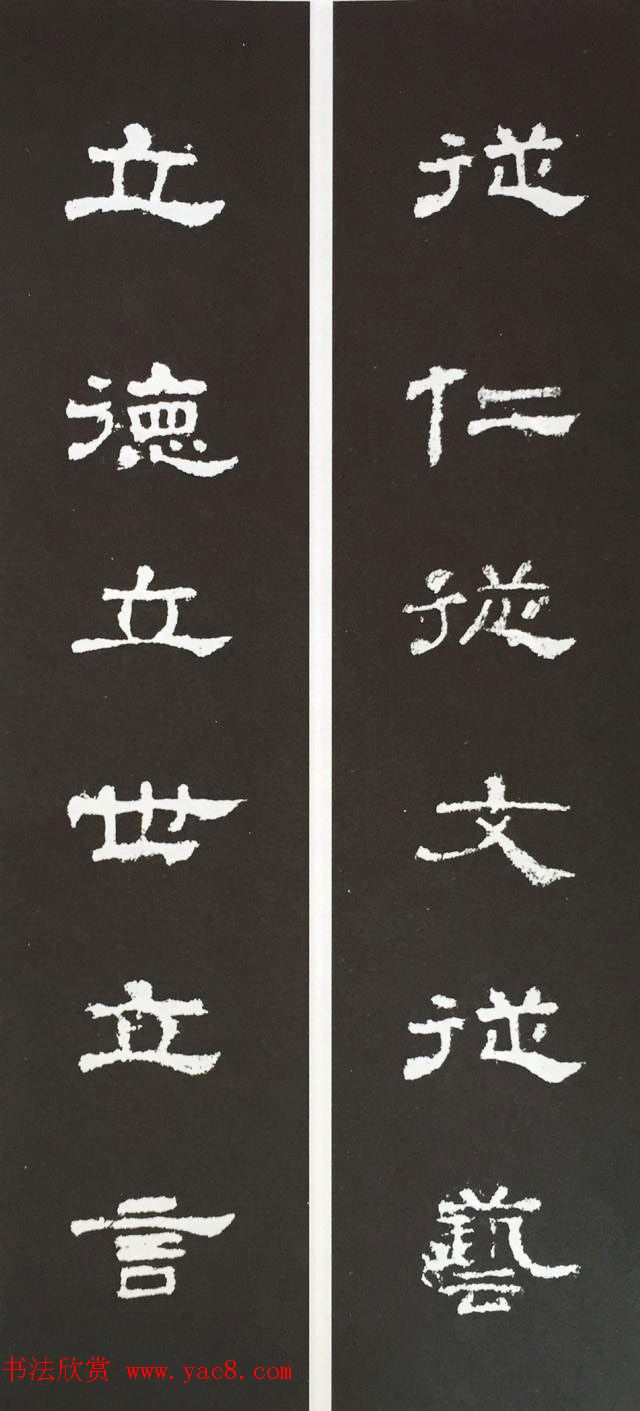 從仁從文從藝
立德立世立言
书法欣赏 www.yac8.com